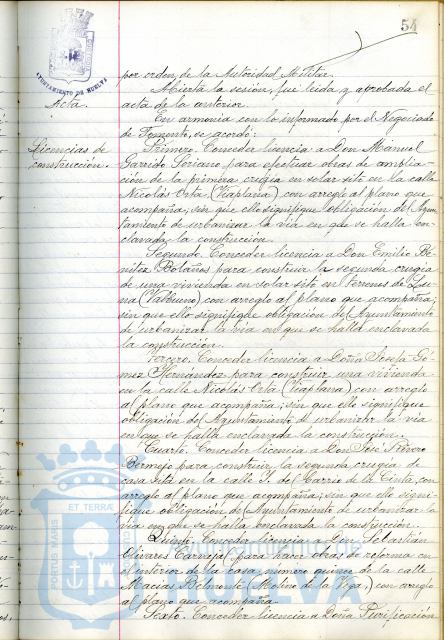 54
AYUNTAMIENTO DE HUELVA
por orden de la Autoridad Militar.
Abierta la sesión, fue leida y aprobada el
Acta.
acta de la anterior.
En armonia con lo informado por el Negociado
de Fomento, se acordó:
Licencias de
construcción.
Primero. Conceder licencia a Don Manuel
Garrido Soriano para efectuar obras de amplia-
ción de la primera crugia en solar sito en la calle
Nicolás Orta (Viaplana) con arreglo al plano que
acompaña, sin que ello signifique obligación del Ayun-
tamiento de urbanizar la via en que se halla en-
clavada la construcción.
Segundo. Conceder licencia a Don Emilio Be-
nitez Bolaños para construir la segunda crugia
de una vivienda en solar sito en terrenos de
(Valbueno) con arreglo al plano que acompaña,
sin que ello signifique obligación de Ayuntamiento
de urbanizar la via en que se halla enclavada
la construcción.
Tercero. Conceder licencia a Doña Josefa Gó-
mez Hernández para construir una vivienda
en la calle Nicolás Orta (Viaplana) con arreglo
al plano que acompaña, sin que ello signifique
obligación del Ayuntamiento de urbanizar la via
en que se halla enclavada la construcción.
Cuarto. Conceder licencia a Don José Piñero
Bermejo para construir la segunda crugia de
casa sita en la calle J. del Barrio de la Cinta, con
arreglo al plano que acompaña, sin que ello signi-
fique obligación de Ayuntamiento de urbanizar la
via en que se halla enclavada la construcción.
Quinto. Conceder licencia a Don Sebastián
Olivares para hacer obras de reforma en
el interior de la casa número quince de la calle
Macias Belmonte (Molino de la Vega), con arreglo
al plano que acompaña.
Sexto. Conceder licencia a Doña Purificación
PORTUS MARIS
ET TERRAE
CUSTODIA